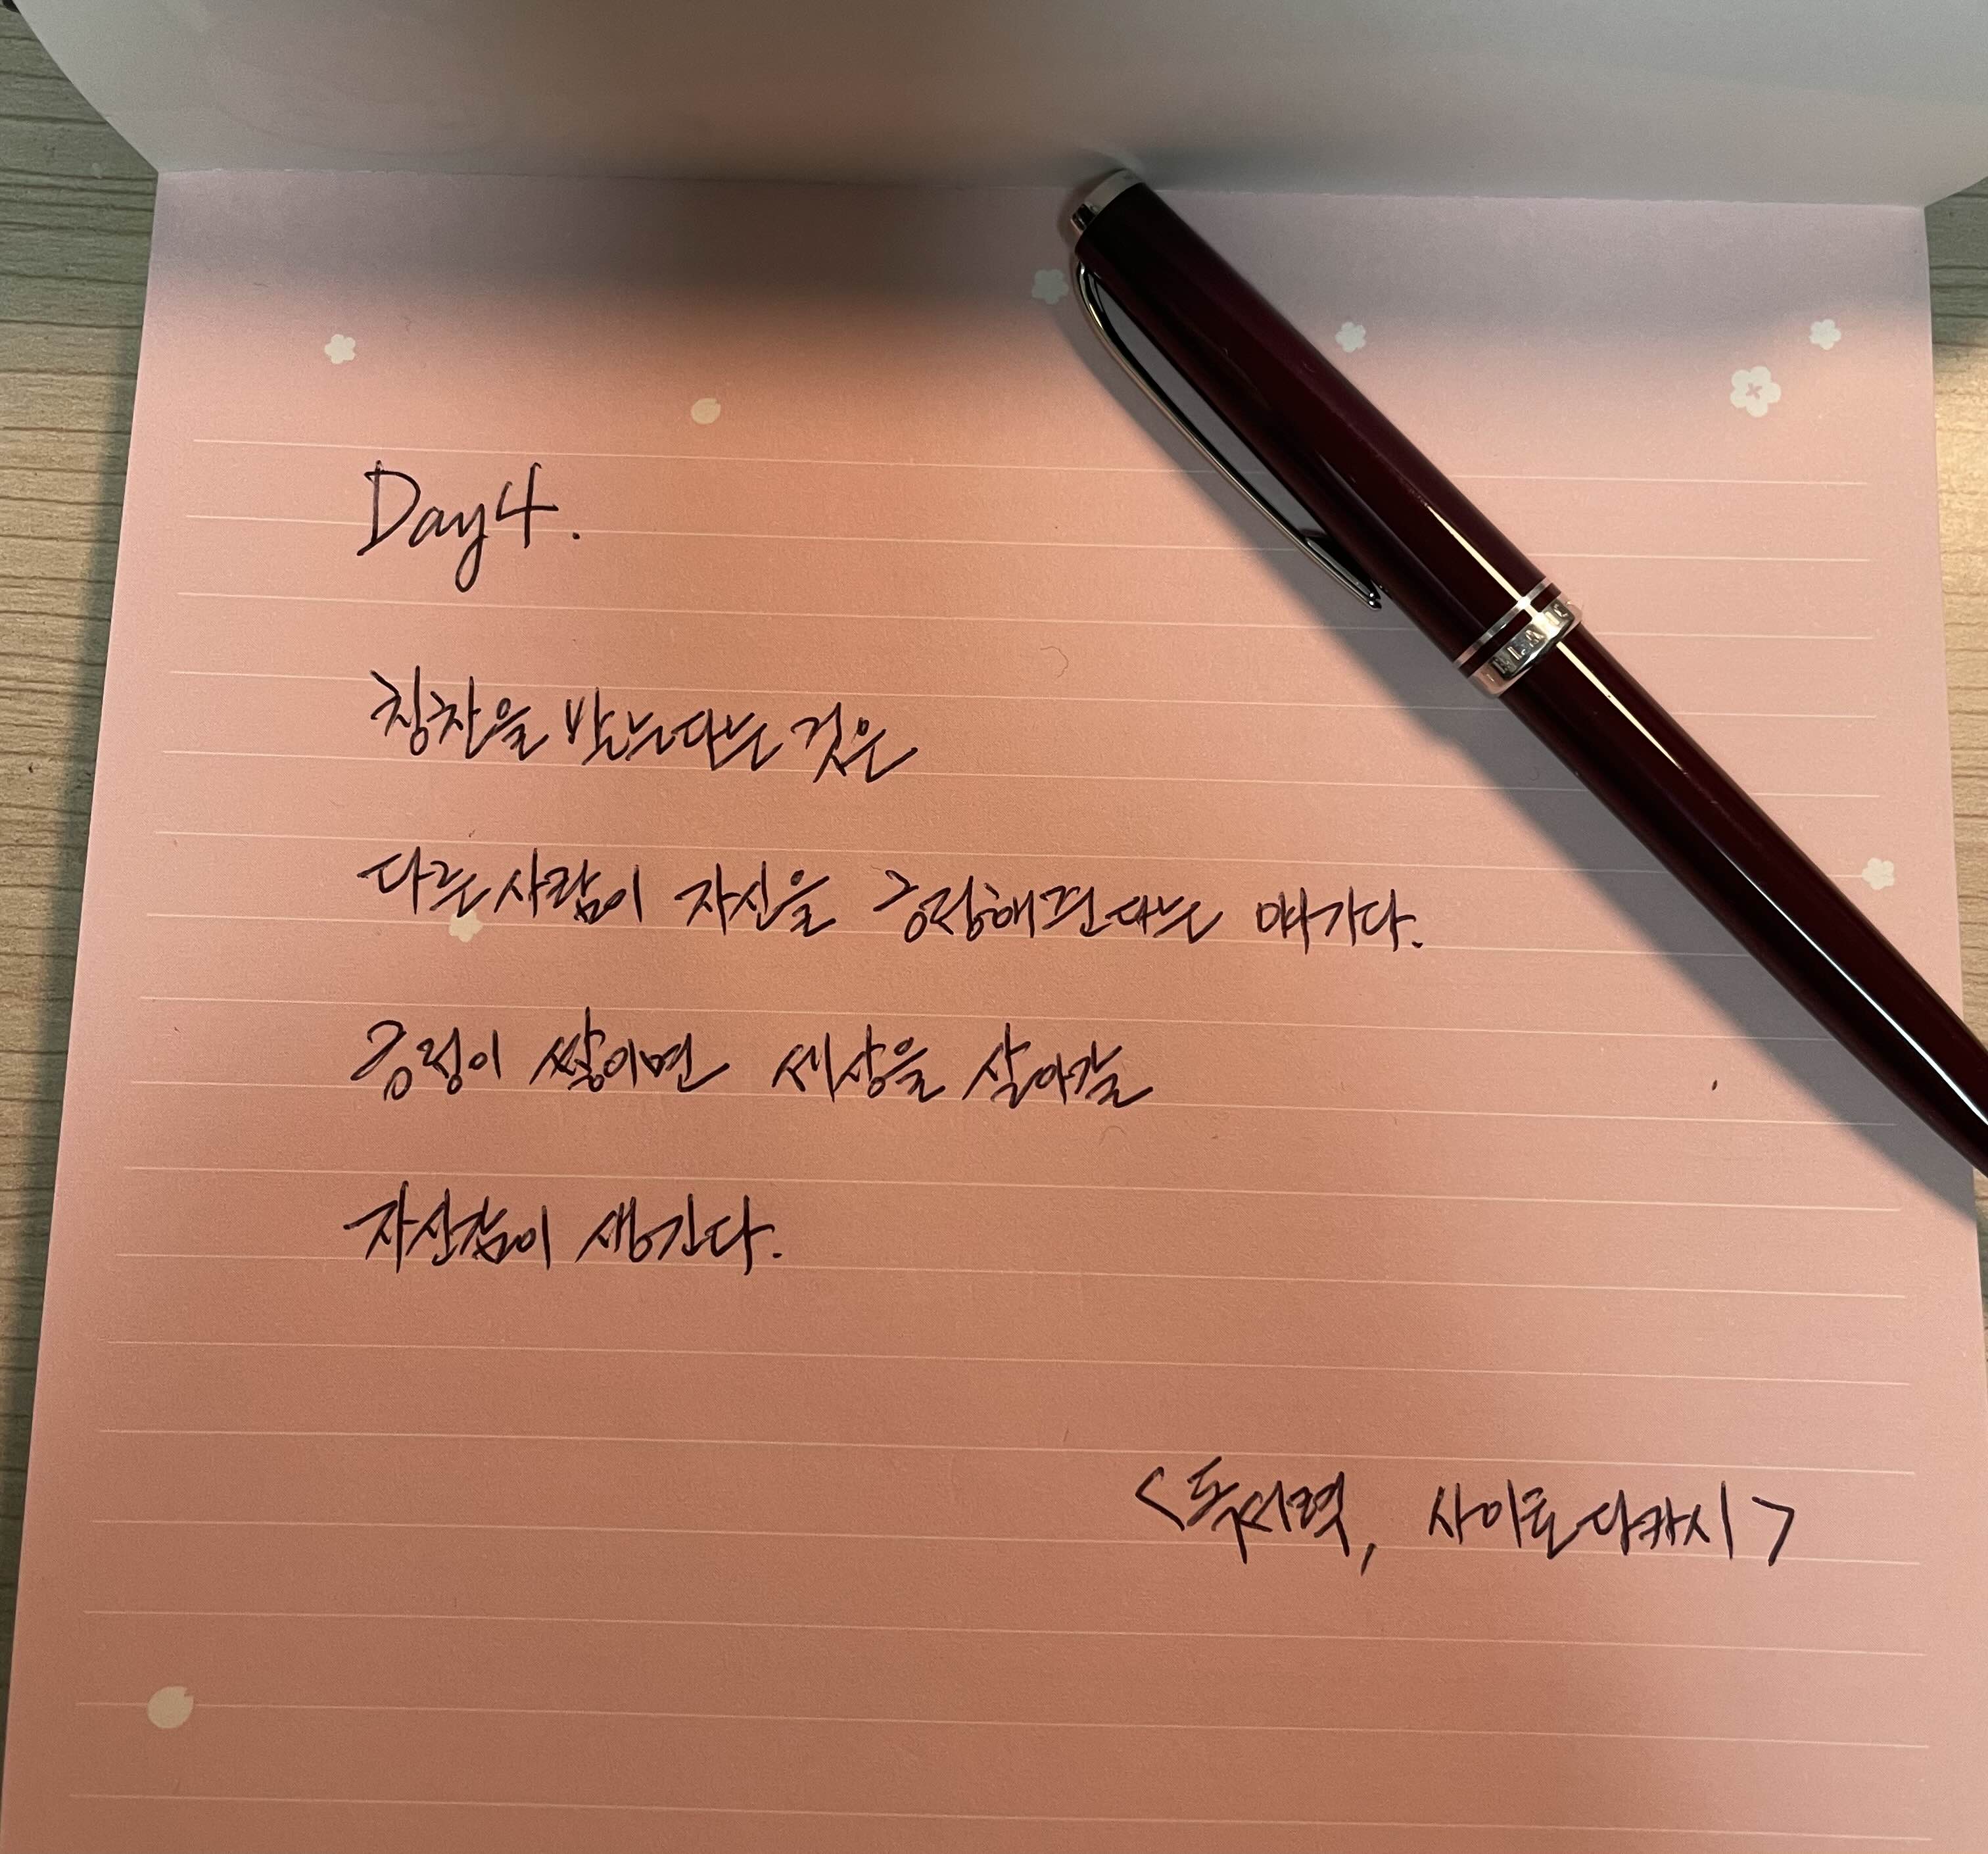 Day 4.
칭찬을 받는다는 것은
다른 사람이 자신을 긍정해준다는 얘기다.
긍정이 쌓이면 세상을 살아갈
자신감이 생긴다.
<독서력, 사이토 다카시>